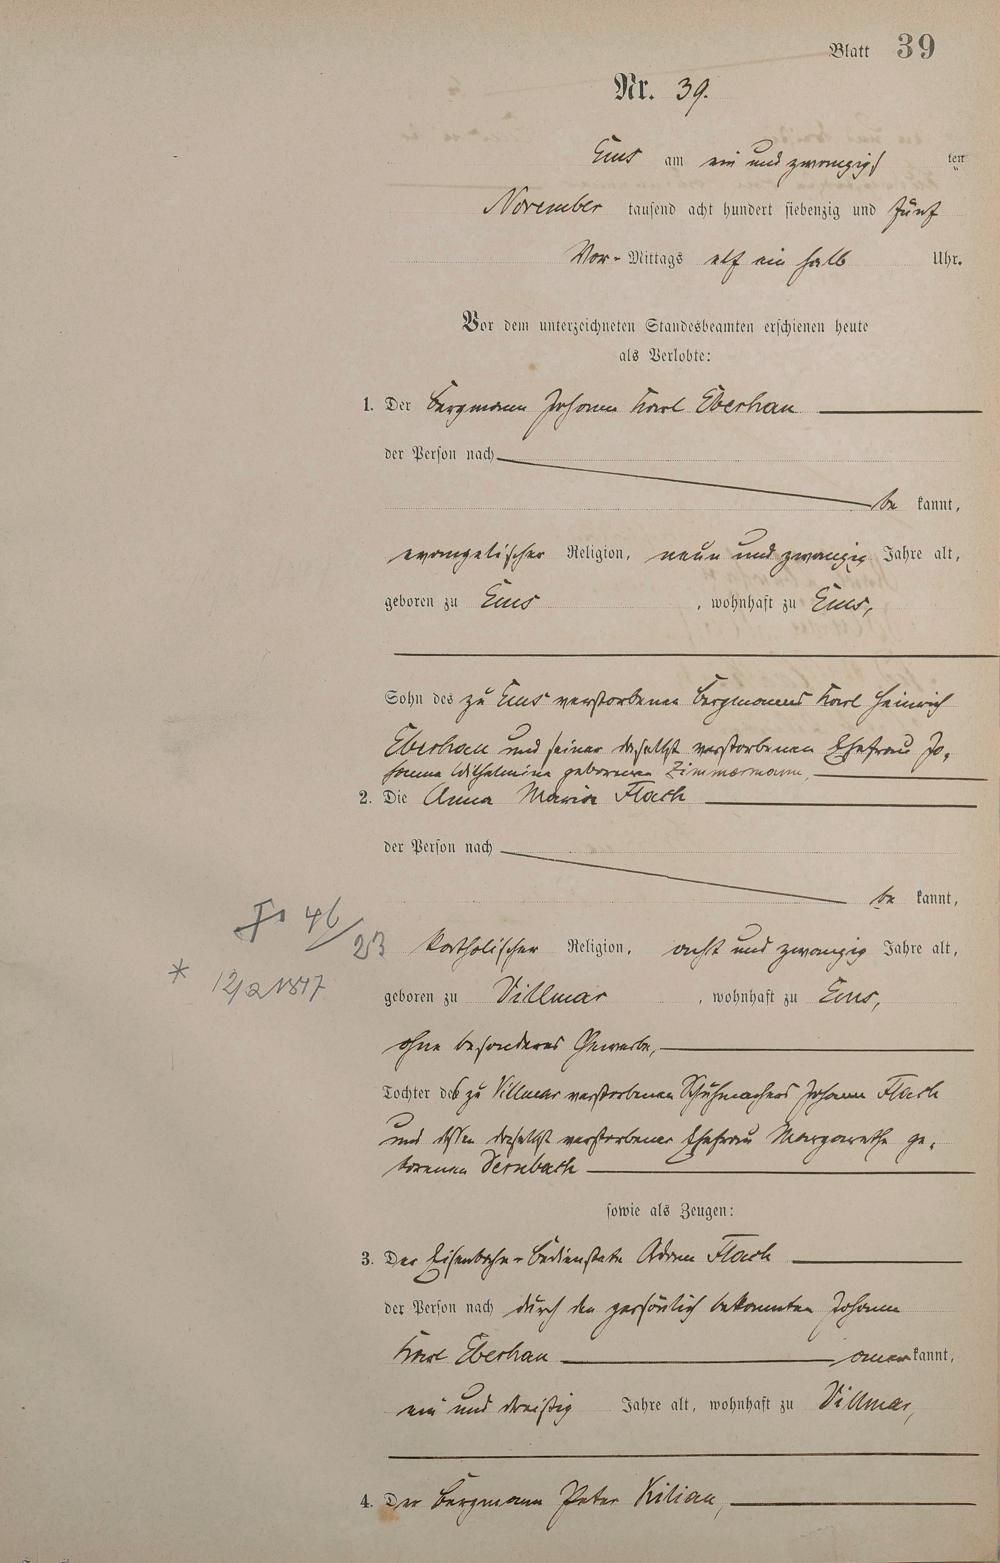 Blatt 39
Nr. 39.
Ems am ein und zwanzigs ten
November tausend acht hundert siebenzig und fünf
Vor-Mittags elf ein halb Uhr.
Vor dem unterzeichneten Standesbeamten erschienen heute
als Verlobte:
1. Der Bergmann Johann Karl Eberhan
der Person nach
be kannt,
evangelischer Religion, neun und zwanzig Jahre alt,
geboren zu Ems, wohnhaft zu Ems,
Sohn des zu Ems verstorbenen Bergmanns Karl Heinrich
Eberhan und seiner daselbst verstorbenen Ehefrau Jo-
hanna Wilhelmina geborenen Zimmermann,
2. Die Anna Maria Flach
der Person nach
be kannt,
46/
23 katholischer Religion, acht und zwanzig Jahre alt,
* 12/2 1847 geboren zu Villmar, wohnhaft zu Ems,
ohne besonderes Gewerbe,
Tochter des zu Villmar verstorbenen Schuhmachers Johann Flach
und dessen daselbst verstorbener Ehefrau Margarethe ge-
borenen Dernbach
sowie als Zeugen:
3. Der Eisenbahn-Bedienstete Adam Flach
der Person nach durch den persönlich bekannten Johann
Karl Eberhan anerkannt,
ein und dreißig Jahre alt, wohnhaft zu Villmar,
4. Der Bergmann Peter Kilian,